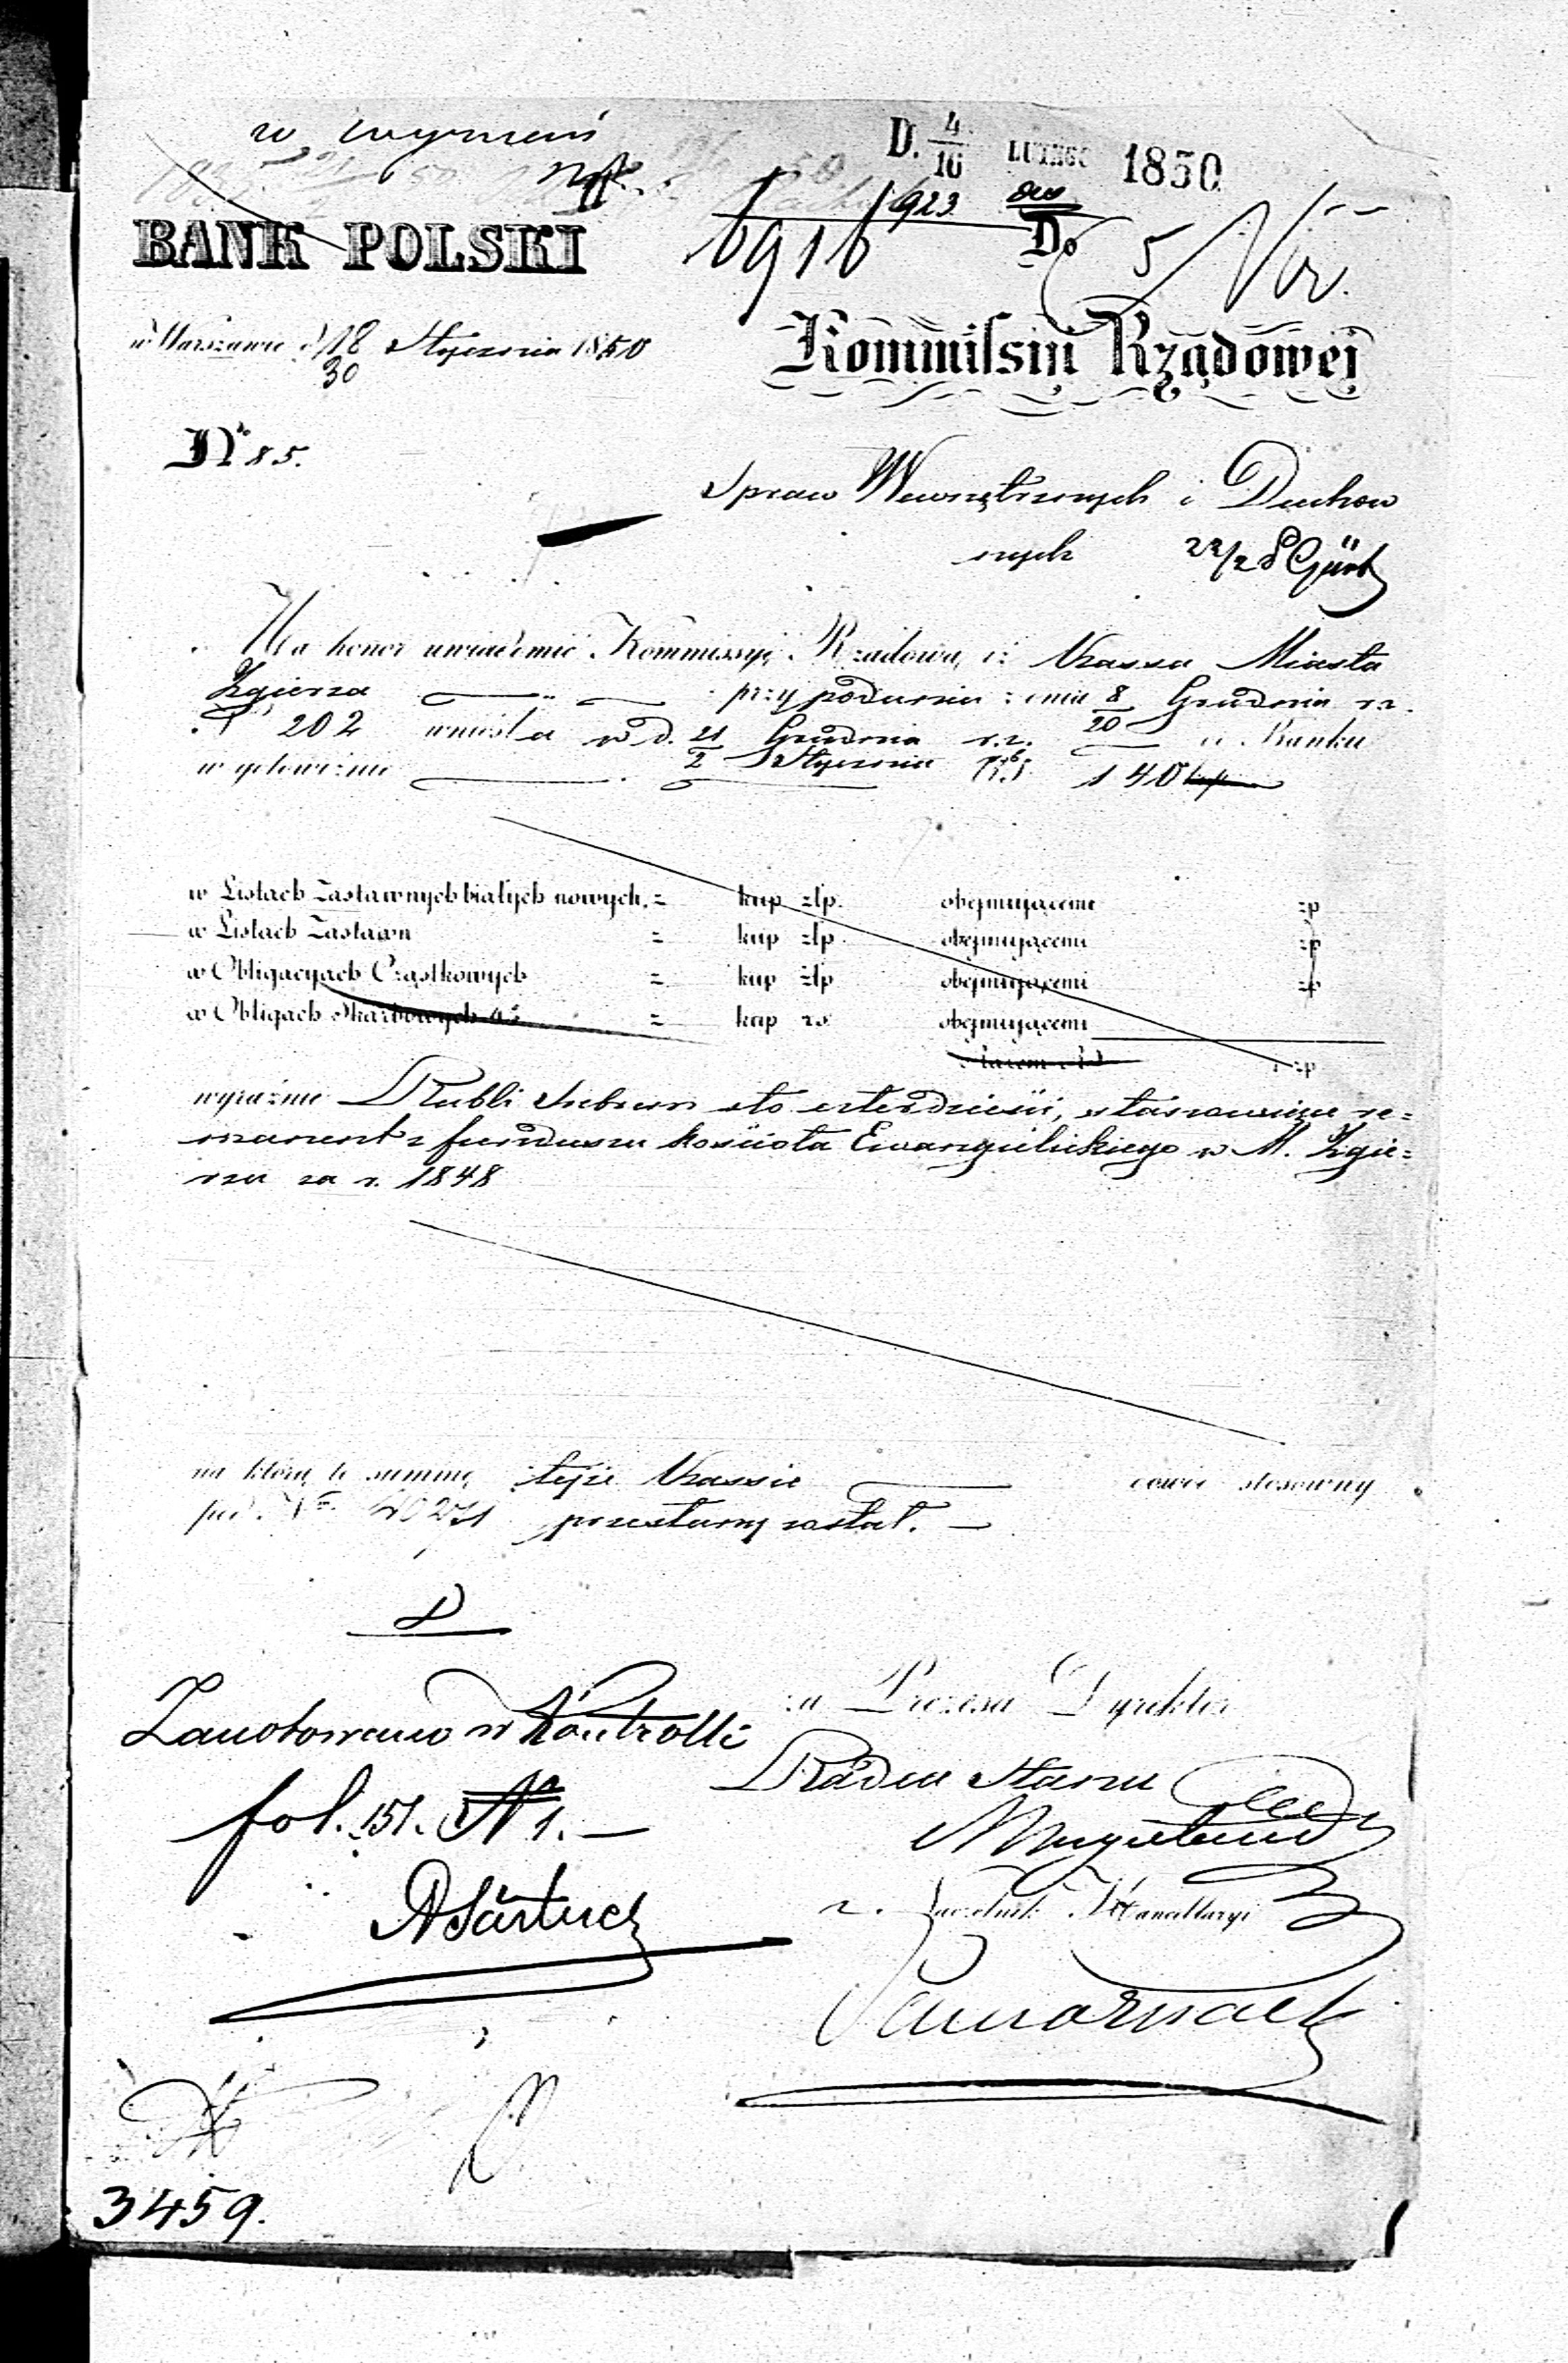 w wymian
D. 4/16 LUTEGO 1850
1923
BANK POLSKI
6916
Do
5
w Warszawie d. 18/30 Stycznia 1850
Kommissin Rządowej
No 85.
Spraw Wewnętrznych i Duchow
nych
Ma honor uwiadomić Kommissyę Rządową, iż Kassa Miasta
Zgierza przy podaniu z dnia 8/20 Grudnia r.z.
No 202 wniosła w d. 21 Grudnia r.z. / 2 Stycznia r.b. do Banku
w gotowiźnie rs 140
w Listach Zastawnych białych nowych = kup złp. obejmującemi zp
w Listach Zastawn = kup złp. obejmującemi zp
w Obligacyach Cząstkowych = kup złp obejmującemi zp
w Obligach Skarbowych = kup rs obejmującemi
Razem zp
wyraźnie Rubli Srebrem sto czterdzieści, stanowiące re=
manent z funduszu kościoła Ewangielickiego w M. Zgie=
rzu za r. 1848
na którą to summę tejże Kassie dowód stosowny
pod No 40271 przesłany został.
Zanotowano w Kontrolli
za Prezesa Dyrektor
Radca Stanu
fol. 151. No 1.
Naczelnik Kancellaryi
3459.